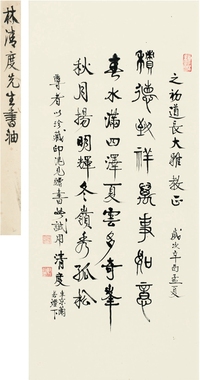 之初道長大雅教正
歲次辛酉孟夏
積德致祥萬事如意
春水滿四澤夏雲多奇峯
秋月揚明輝冬嶺秀孤松
尊者以珍藏印泥見贈書此試用
清度
燈下
林清度先生書軸